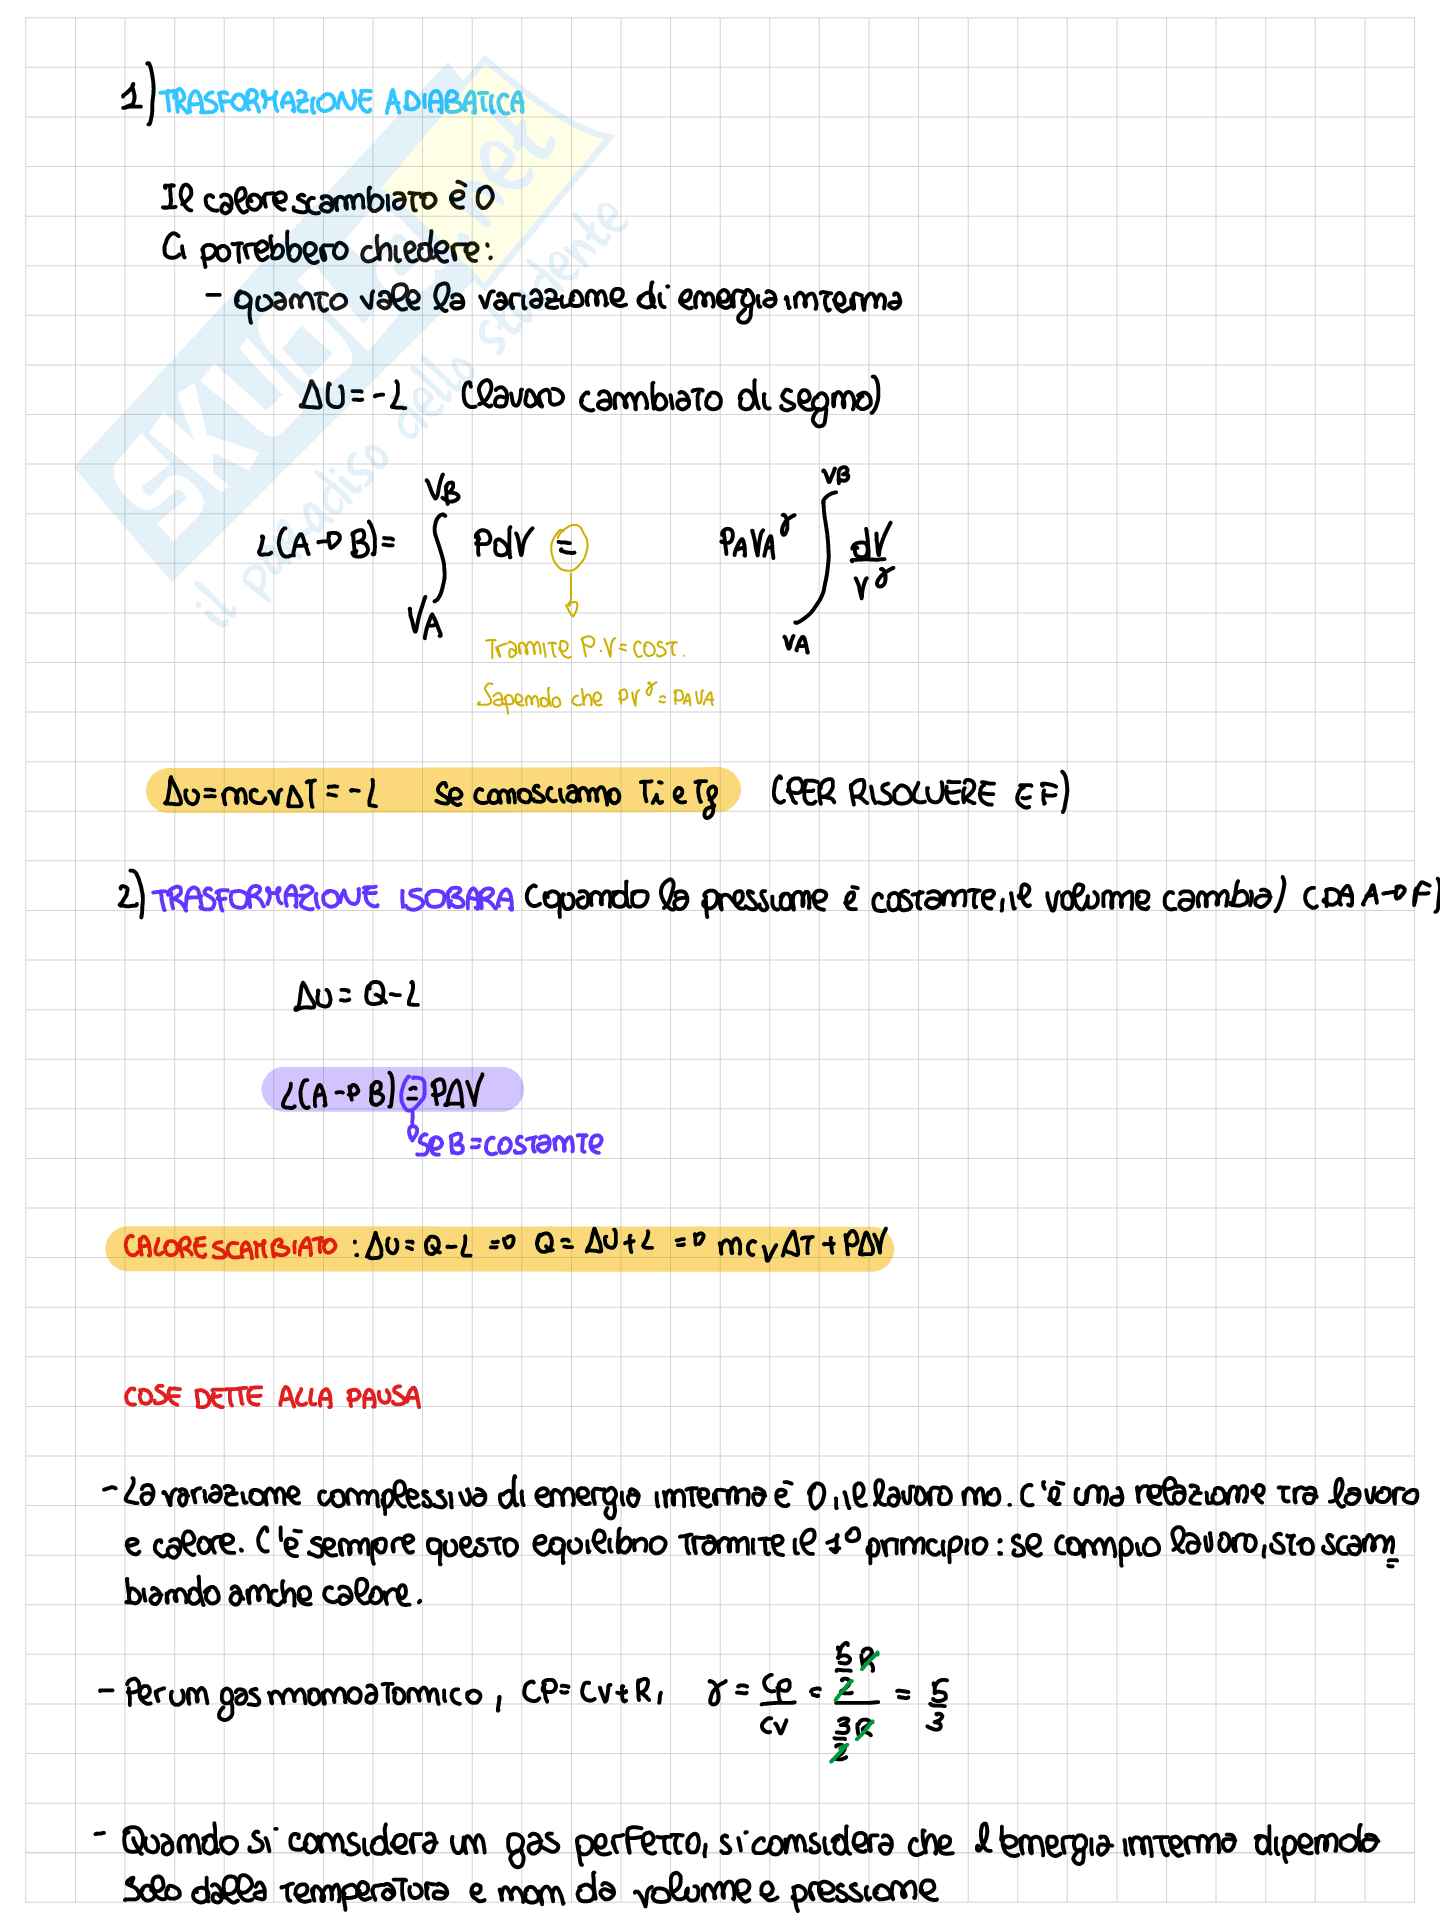 1) TRASFORMAZIONE ADIABATICA
Il calore scambiato è 0
Ci potrebbero chiedere:
- quanto vale la variazione di energia interna
ΔU = -L (lavoro cambiato di segno)
L(A→B) = ∫ VA VB PdV = PAVA^γ ∫ VA VB dV/V^γ
Tramite P·V = COST.
Sapendo che PV^γ = PAVA
ΔU = mcvΔT = -L se conosciamo Ti e Tf (PER RISOLVERE EF)
2) TRASFORMAZIONE ISOBARA (quando la pressione è costante, il volume cambia) (DA A→F)
ΔU = Q-L
L(A→B) = PΔV
se B = costante
CALORE SCAMBIATO : ΔU = Q-L ⇒ Q = ΔU+L ⇒ mcvΔT + PΔV
COSE DETTE ALLA PAUSA
- La variazione complessiva di energia interna è 0, il lavoro no. C'è una relazione tra lavoro
e calore. C'è sempre questo equilibrio tramite il 1° principio : se compio lavoro, sto scam
biando anche calore.
- Per un gas monoatomico, CP = CV + R, γ = Cp/Cv = 5/2 R / 3/2 R = 5/3
- Quando si considera un gas perfetto, si considera che l'energia interna dipenda
solo dalla temperatura e non da volume e pressione
SKUOLA.net
il paradiso dello studente